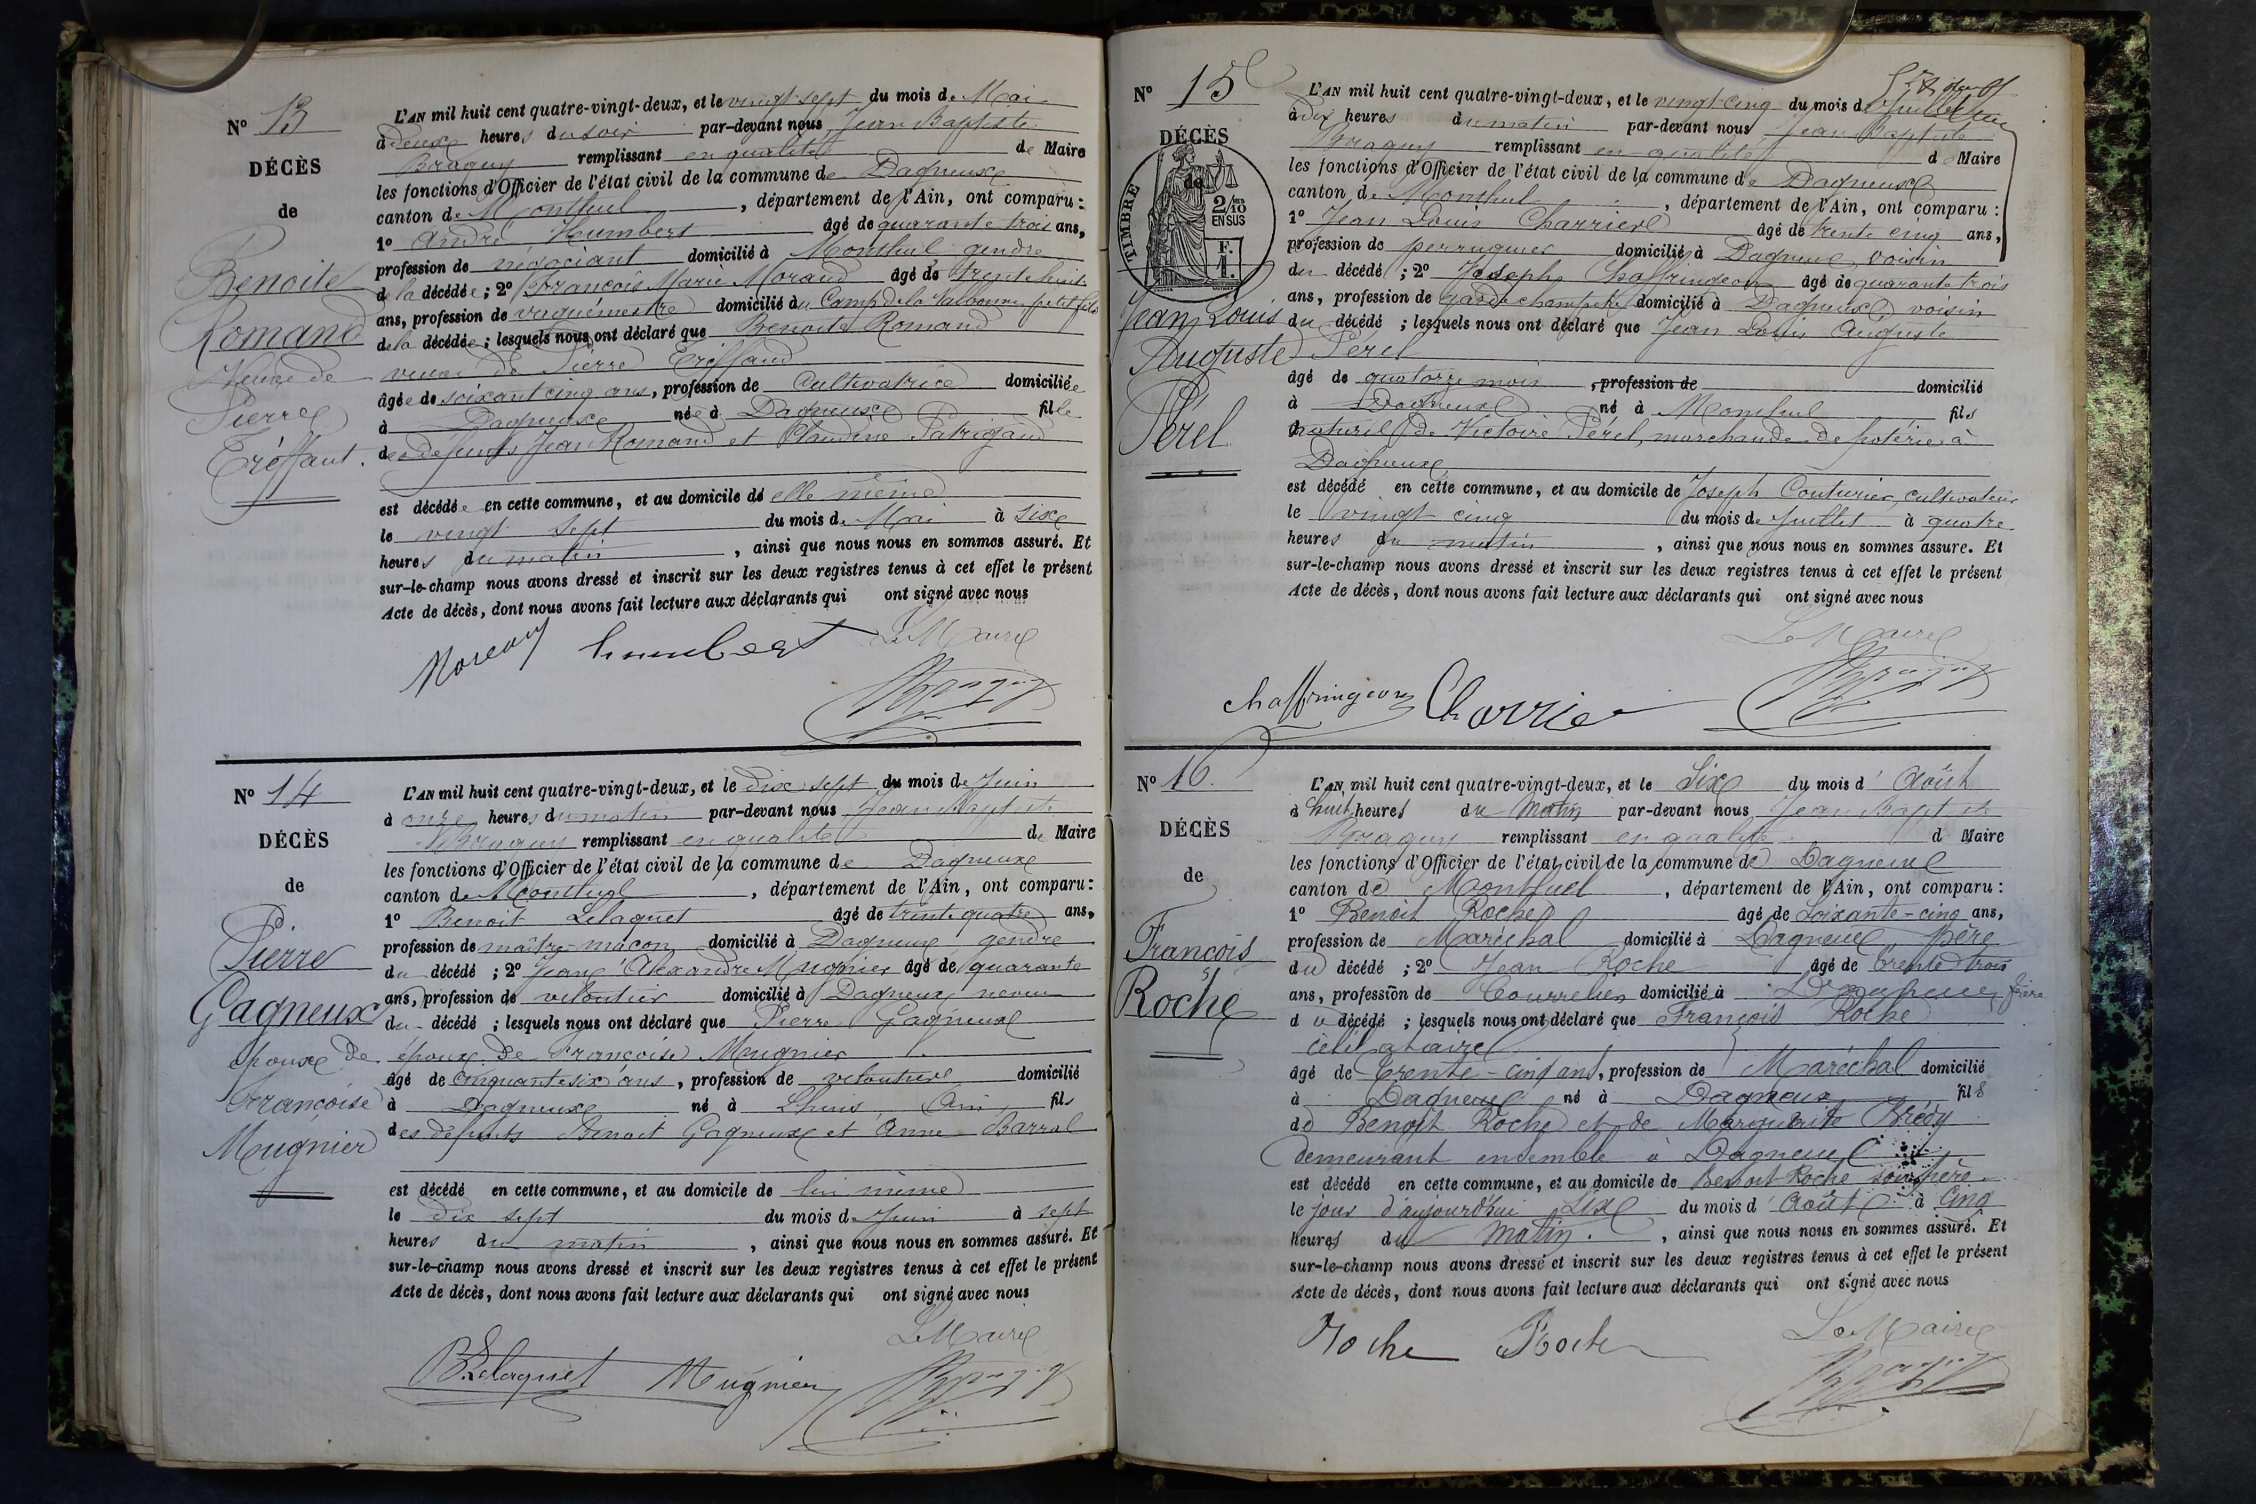 N° 13
DÉCÈS
de
Benoite
Romand
Veuve de
Pierre
Tréffant.
L'AN mil huit cent quatre-vingt-deux, et le vingt sept du mois de Mai
à deux heures du soir par-devant nous Jean Baptiste
Braguy remplissant en qualité de Maire
les fonctions d'Officier de l'état civil de la commune de Dagneux
canton de Montluel, département de l'Ain, ont comparu :
1° André Humbert âgé de quarante trois ans,
profession de négociant domicilié à Montluel gendre
de la décédée ; 2° François Marie Morand âgé de trente huit
ans, profession de vaguemestre domicilié au Camp de la Valbonne petit fils
de la décédée ; lesquels nous ont déclaré que Benoite Romand
veuve de Pierre Tréffand
âgée de soixant cinq ans, profession de Cultivatrice domiciliée
à Dagneux née à Dagneux fille
des defunts Jean Romand et Claudine Patrigand
est décédée en cette commune, et au domicile de elle même
le vingt sept du mois de Mai à six
heures du matin, ainsi que nous nous en sommes assuré. Et
sur-le-champ nous avons dressé et inscrit sur les deux registres tenus à cet effet le présent
Acte de décès, dont nous avons fait lecture aux déclarants qui ont signé avec nous
Le Maire
humbert
N° 14
DÉCÈS
de
Pierre
Gagneux
époux de
Françoise
Mugnier
L'AN mil huit cent quatre-vingt-deux, et le dix sept du mois de Juin
à onze heures du matin par-devant nous Jean Baptiste
Braguy remplissant en qualité de Maire
les fonctions d'Officier de l'état civil de la commune de Dagneux
canton de Montluel, département de l'Ain, ont comparu :
1° Benoit Lelaquet âgé de trente quatre ans,
profession de maître-maçon domicilié à Dagneux gendre
du décédé ; 2° Jean Alexandre Mugnier âgé de quarante
ans, profession de veloutier domicilié à Dagneux neveu
du décédé ; lesquels nous ont déclaré que Pierre Gagneux
époux de Françoise Mugnier
âgé de cinquante six ans, profession de veloutier domicilié
à Dagneux né à Lhuis Ain fils
des défunts Benoit Gagneux et Anne Barral
est décédé en cette commune, et au domicile de lui même
le dix sept du mois de Juin à sept
heures du matin, ainsi que nous nous en sommes assuré. Et
sur-le-champ nous avons dressé et inscrit sur les deux registres tenus à cet effet le présent
Acte de décès, dont nous avons fait lecture aux déclarants qui ont signé avec nous
Le Maire
B Lelaquet Mugnier
N° 15
DÉCÈS
de
TIMBRE
2/10
EN SUS
F.
1.
Jean Louis
Auguste
Pérel
L'AN mil huit cent quatre-vingt-deux, et le vingt cinq du mois de Juillet
à dix heures du matin par-devant nous Jean Baptiste
Braguy remplissant en qualité de Maire
les fonctions d'Officier de l'état civil de la commune de Dagneux
canton de Montluel, département de l'Ain, ont comparu :
1° Jean Louis Charrier âgé de trente cinq ans,
profession de perruquier domicilié à Dagneux voisin
du décédé ; 2° Joseph Chaffringeon âgé de quarante trois
ans, profession de garde champêtre domicilié à Dagneux, voisin
du décédé ; lesquels nous ont déclaré que Jean Louis Auguste
Pérel
âgé de quatorze mois, profession de domicilié
à Dagneux né à Montluel fils
naturel de Victoire Pérel, marchande de poterie à
Dagneux
est décédé en cette commune, et au domicile de Joseph Couturier, cultivateur
le vingt cinq du mois de Juillet à quatre
heures du matin, ainsi que nous nous en sommes assuré. Et
sur-le-champ nous avons dressé et inscrit sur les deux registres tenus à cet effet le présent
Acte de décès, dont nous avons fait lecture aux déclarants qui ont signé avec nous
Le Maire
Chaffringeon Charrier
N° 16.
DÉCÈS
de
François
Roche
L'AN mil huit cent quatre-vingt-deux, et le Six du mois d'Août
à huit heures du Matin par-devant nous Jean Baptiste
Braguy remplissant en qualité de Maire
les fonctions d'Officier de l'état civil de la commune de Dagneux
canton de Montluel, département de l'Ain, ont comparu :
1° Benoit Roche âgé de Soixante-cinq ans,
profession de Maréchal domicilié à Dagneux père
du décédé ; 2° Jean Roche âgé de trente trois
ans, profession de Bourrelier domicilié à Dagneux frère
du décédé ; lesquels nous ont déclaré que François Roche
célibataire
âgé de Trente-cinq ans, profession de Maréchal domicilié
à Dagneux né à Dagneux fils
de Benoit Roche et de Marguerite Brédy
demeurant ensemble à Dagneux
est décédé en cette commune, et au domicile de Benoit Roche son père
le jour d'aujourd'hui six du mois d'Août à cinq
heures du Matin., ainsi que nous nous en sommes assuré. Et
sur-le-champ nous avons dressé et inscrit sur les deux registres tenus à cet effet le présent
Acte de décès, dont nous avons fait lecture aux déclarants qui ont signé avec nous
Le Maire
Roche Roche